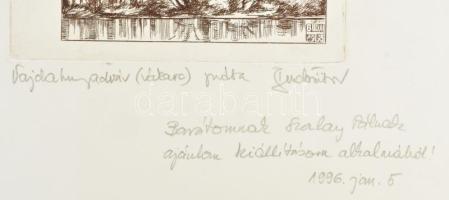 Vajdahunyadvár (rézkarc)
Barátomnak Szalay Pálnak
ajánlom kiállításom alkalmából!
1996. jan. 5